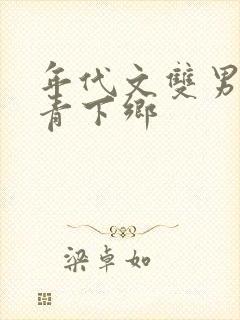 年代文雙男
青下鄉
梁卓如